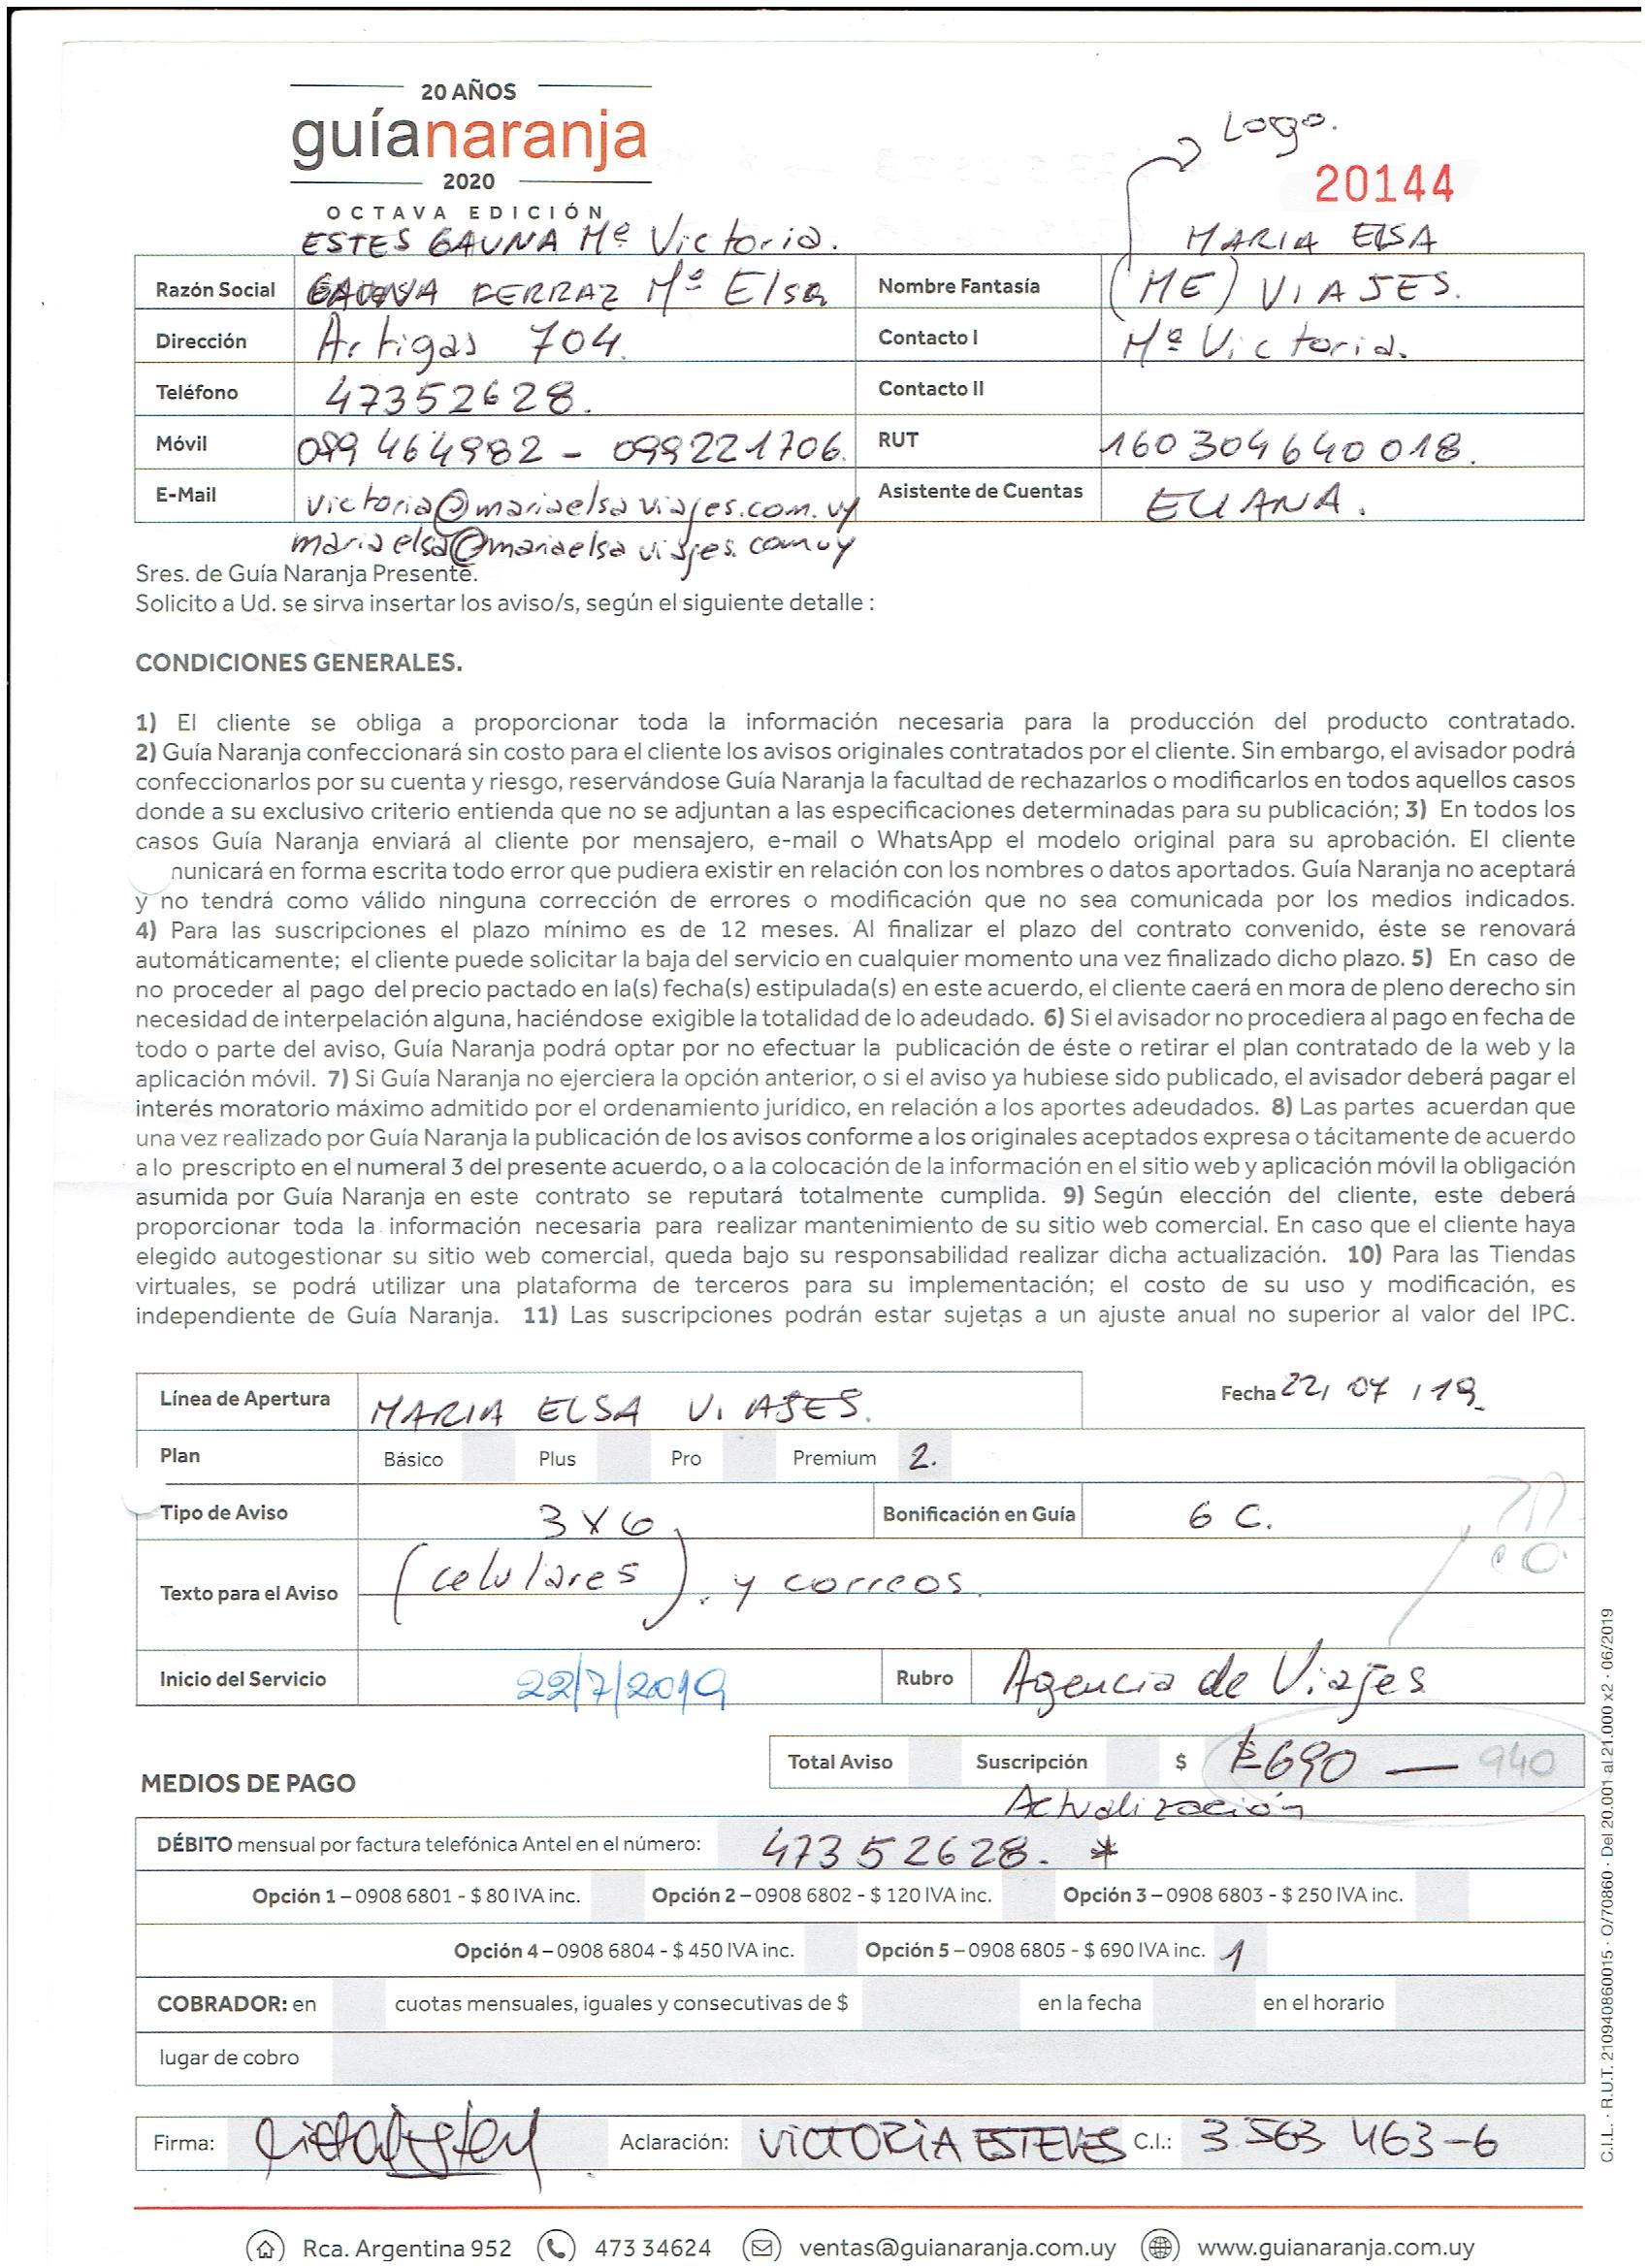 20 AÑOS
guíanaranja
2020
OCTAVA EDICIÓN
Logo.
20144
ESTES GAUNA Mª Victoria.
MARIA ELSA
Razón Social GAUNA FERRAZ Mª Elsa Nombre Fantasía (ME) VIAJES.
Dirección Artigas 704. Contacto I Mª Victoria.
Teléfono 47352628. Contacto II
Móvil 099 464982 - 099221706. RUT 160304640018.
E-Mail victoria@mariaelsaviajes.com.uy Asistente de Cuentas ELIANA.
mariaelsa@mariaelsaviajes.comuy
Sres. de Guía Naranja Presente.
Solicito a Ud. se sirva insertar los aviso/s, según el siguiente detalle :
CONDICIONES GENERALES.
1) El cliente se obliga a proporcionar toda la información necesaria para la producción del producto contratado.
2) Guía Naranja confeccionará sin costo para el cliente los avisos originales contratados por el cliente. Sin embargo, el avisador podrá
confeccionarlos por su cuenta y riesgo, reservándose Guía Naranja la facultad de rechazarlos o modificarlos en todos aquellos casos
donde a su exclusivo criterio entienda que no se adjuntan a las especificaciones determinadas para su publicación; 3) En todos los
casos Guía Naranja enviará al cliente por mensajero, e-mail o WhatsApp el modelo original para su aprobación. El cliente
nunicará en forma escrita todo error que pudiera existir en relación con los nombres o datos aportados. Guía Naranja no aceptará
y no tendrá como válido ninguna corrección de errores o modificación que no sea comunicada por los medios indicados.
4) Para las suscripciones el plazo mínimo es de 12 meses. Al finalizar el plazo del contrato convenido, éste se renovará
automáticamente; el cliente puede solicitar la baja del servicio en cualquier momento una vez finalizado dicho plazo. 5) En caso de
no proceder al pago del precio pactado en la(s) fecha(s) estipulada(s) en este acuerdo, el cliente caerá en mora de pleno derecho sin
necesidad de interpelación alguna, haciéndose exigible la totalidad de lo adeudado. 6) Si el avisador no procediera al pago en fecha de
todo o parte del aviso, Guía Naranja podrá optar por no efectuar la publicación de éste o retirar el plan contratado de la web y la
aplicación móvil. 7) Si Guía Naranja no ejerciera la opción anterior, o si el aviso ya hubiese sido publicado, el avisador deberá pagar el
interés moratorio máximo admitido por el ordenamiento jurídico, en relación a los aportes adeudados. 8) Las partes acuerdan que
una vez realizado por Guía Naranja la publicación de los avisos conforme a los originales aceptados expresa o tácitamente de acuerdo
a lo prescripto en el numeral 3 del presente acuerdo, o a la colocación de la información en el sitio web y aplicación móvil la obligación
asumida por Guía Naranja en este contrato se reputará totalmente cumplida. 9) Según elección del cliente, este deberá
proporcionar toda la información necesaria para realizar mantenimiento de su sitio web comercial. En caso que el cliente haya
elegido autogestionar su sitio web comercial, queda bajo su responsabilidad realizar dicha actualización. 10) Para las Tiendas
virtuales, se podrá utilizar una plataforma de terceros para su implementación; el costo de su uso y modificación, es
independiente de Guía Naranja. 11) Las suscripciones podrán estar sujetas a un ajuste anual no superior al valor del IPC.
Línea de Apertura MARIA ELSA VIAJES. Fecha 22/ 07 / 19.
Plan Básico Plus Pro Premium 2.
Tipo de Aviso 3x6 Bonificación en Guía 6 C.
Texto para el Aviso (celulares). y correos.
Inicio del Servicio 22/7/2019 Rubro Agencia de Viajes
Total Aviso Suscripción $ $690 — 940
MEDIOS DE PAGO
Actualización
DÉBITO mensual por factura telefónica Antel en el número: 47352628. *
Opción 1 – 0908 6801 - $ 80 IVA inc. Opción 2 – 0908 6802 - $ 120 IVA inc. Opción 3 – 0908 6803 - $ 250 IVA inc.
Opción 4 – 0908 6804 - $ 450 IVA inc. Opción 5 – 0908 6805 - $ 690 IVA inc. 1
COBRADOR: en cuotas mensuales, iguales y consecutivas de $ en la fecha en el horario
lugar de cobro
Firma: Aclaración: VICTORIA ESTEVES C.I.: 3.563 463-6
Rca. Argentina 952 473 34624 ventas@guianaranja.com.uy www.guianaranja.com.uy
C.I.L. · R.U.T. 210940860015 · O/70860 · Del 20.001 al 21.000 x2 · 06/2019